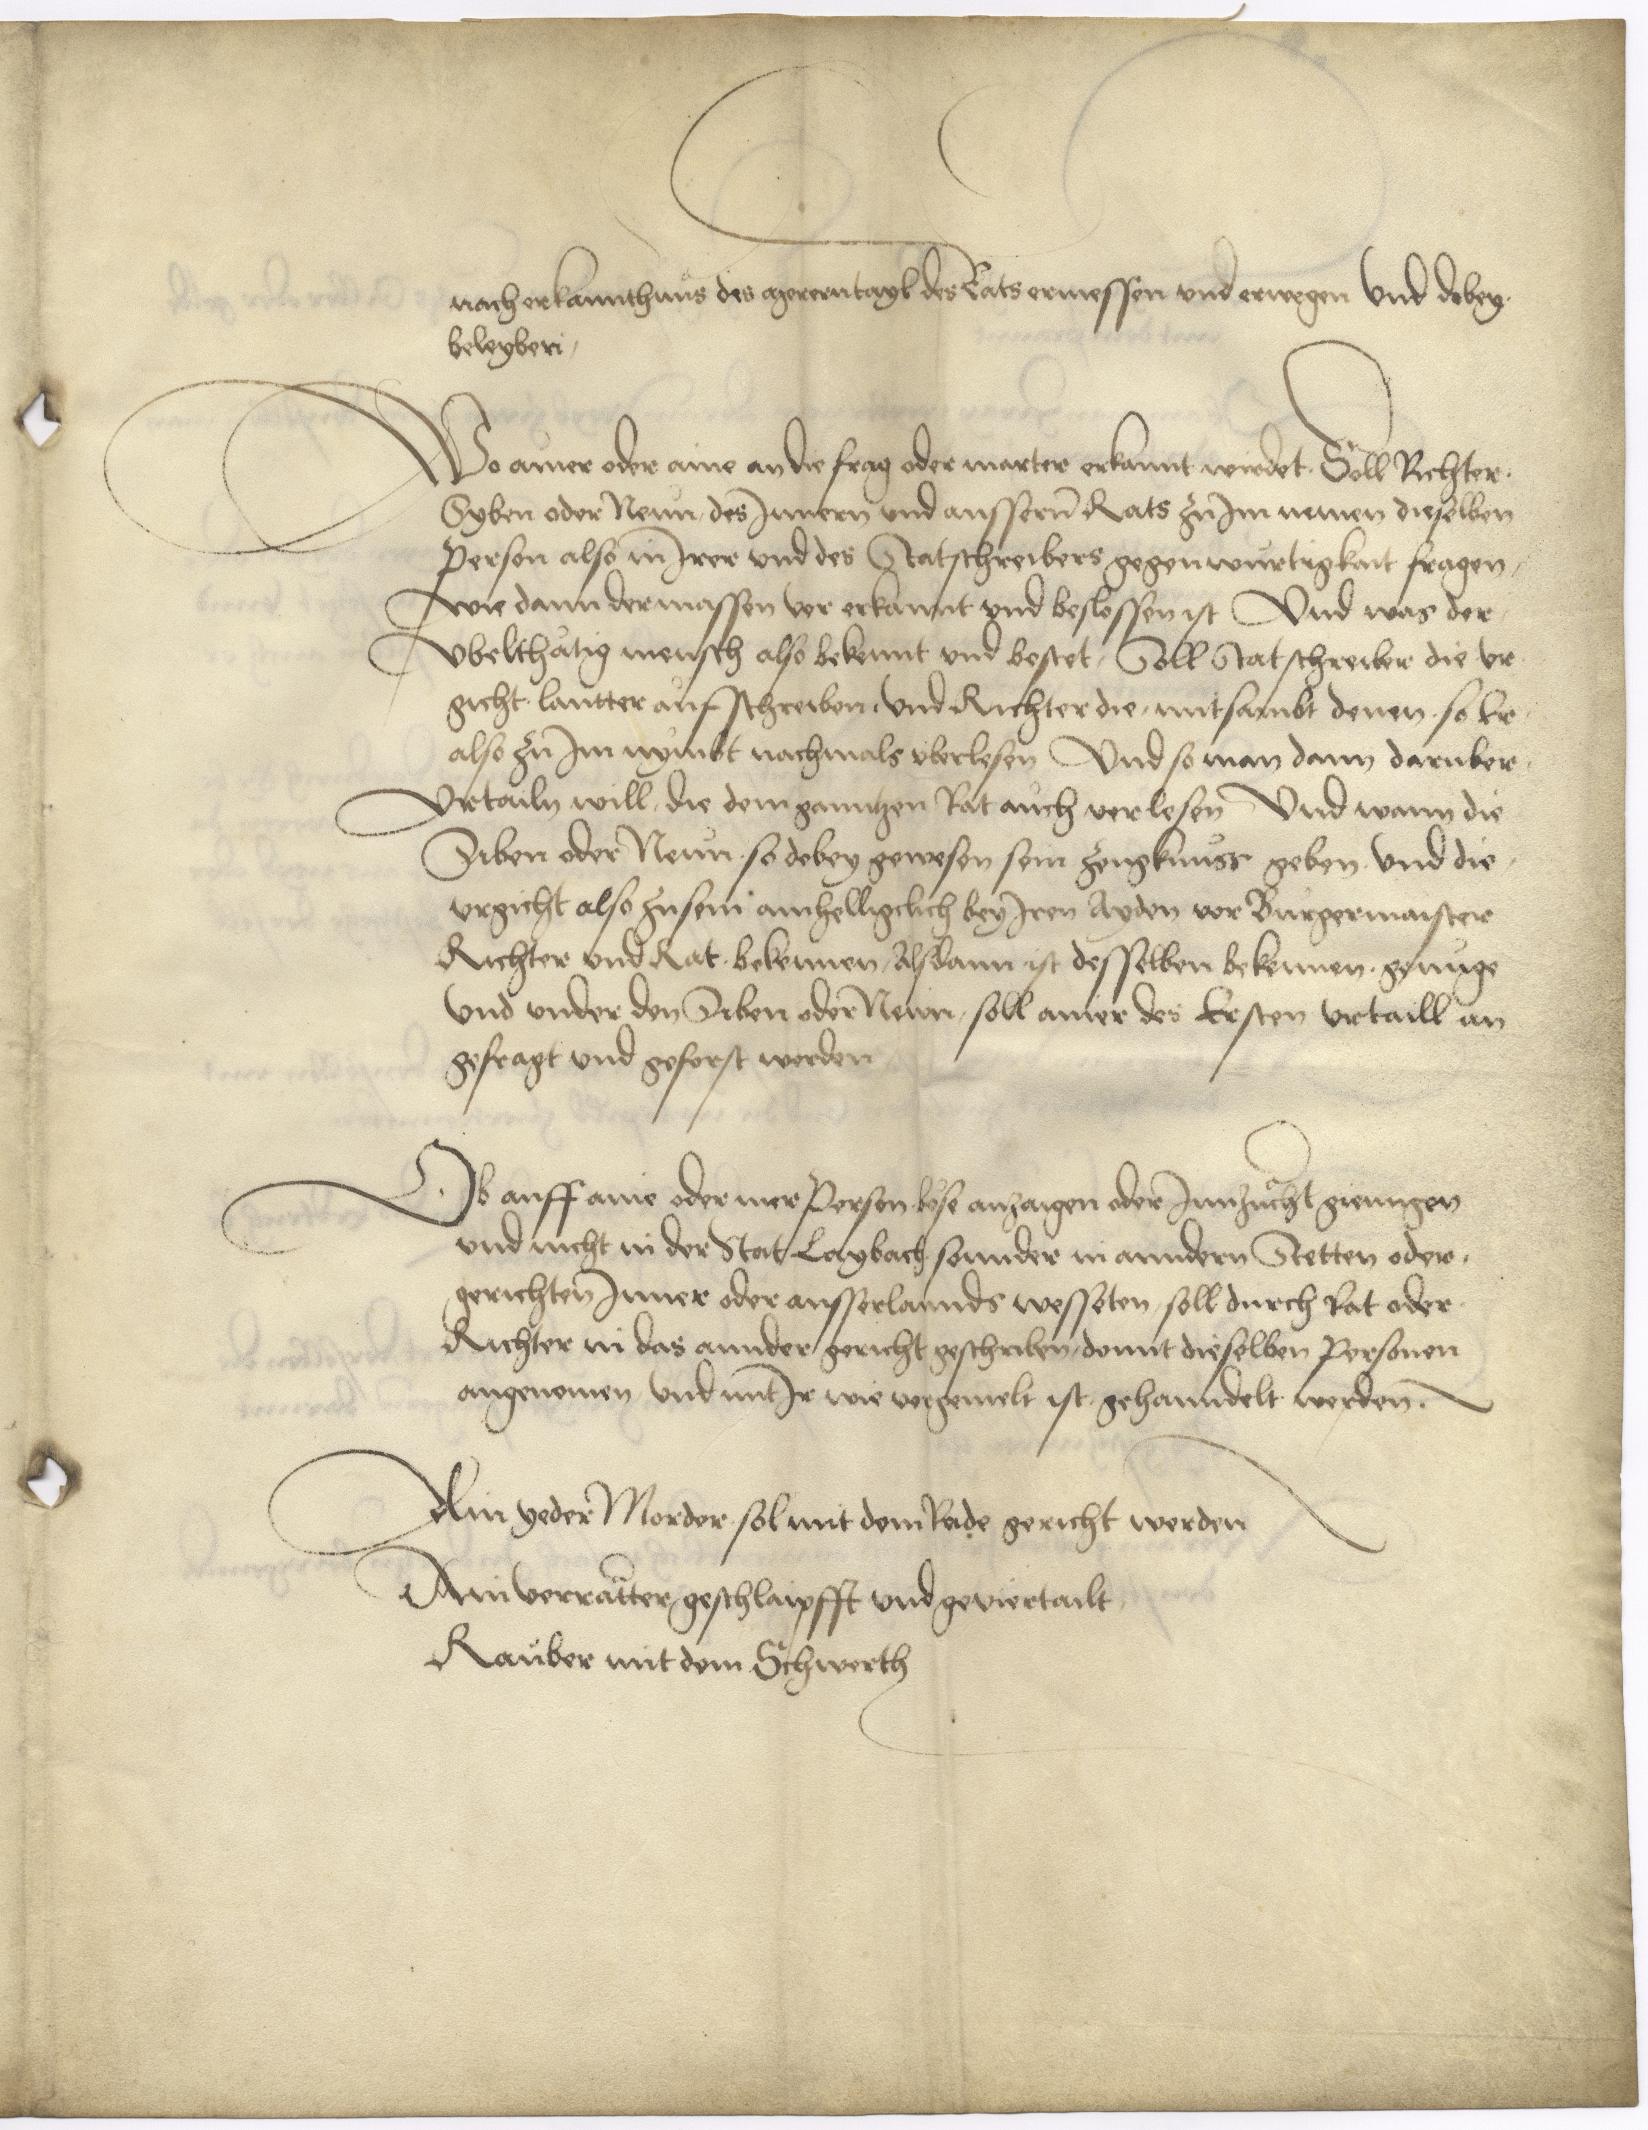 nach erkannthnus des merern tayl des Rats ermessen vnd erwegen Vnd dobey
beleyben
Wo ainer oder aine an die frag oder marter erkannt wirdet. Soll Richter
Syben oder Neun, des Innern vnd aussern Rats zu Im nemen dieselben
Person also in Irer vnd des Statschreibers gegenwurtigkait fragen,
wie dann dermassen vor erkannt vnd beslossen ist Vnd was der
vbelthatig mensch also bekennt vnd bestet, Soll Statschreiber die vr
gicht lautter aufschreiben, Vnd Richter die, mitsambt denen so Er
also zu Im nymbt nachmals vberlesen Vnd so man dann daruber
Vrtailn will, die dem ganntzen Rat auch verlesen Vnd wann die
Siben oder Neun so dobey gewesen sein zeugknuss geben vnd die
vrgicht also zu sein ainhelligclich bey Iren Ayden vor Burgermaister
Richter vnd Rat bekennen, Alsdann ist desselben bekennen genuge
Vnd vnder den Siben oder Newn, soll ainer des Ersten vrtaill an
gefragt vnd geforst werden
Ob auff aine oder mer Person böse anzaigen oder Innzucht giengen
vnd nicht in der Stat Laybach sonnder in anndern Stetten oder
gerichten Inner oder ausserlannds wessten, soll durch Rat oder
Richter in das annder gericht geschriben, domit dieselben Personen
angenomen vnd mit Ir wie vorgemelt ist gehanndelt werden.
Ain yeder Morder sol mit dem Rade gericht werden
Ain verratter geschlaipfft vnd geviertailt
Rauber mit dem Schwerth